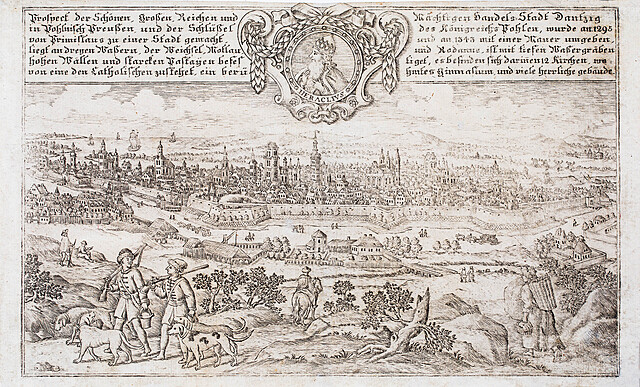 Prospect der Schönen, Großen Reichen und Mächtigen Handels-Stadt Dantzig
in Pohlnisch Preußen, und der Schlüßel des Königreichs Pohlen, wurde an 1295
von Primislaus zu einer Stadt gemacht, und an 1343 mit einer Mauer umgeben,
liegt an dreyen Waßern, der Weichsel, Motlau, und Rodaune, ist mit tiefen Waßergräben
hohen Wällen und starcken Pastayen befes tiget, es befinden sich darinnen 12 Kirchen, wo
von eine den Catholischen zustehet, ein berü hmtes Gimnasium, und viele herrliche gebäude
HERACLIUS